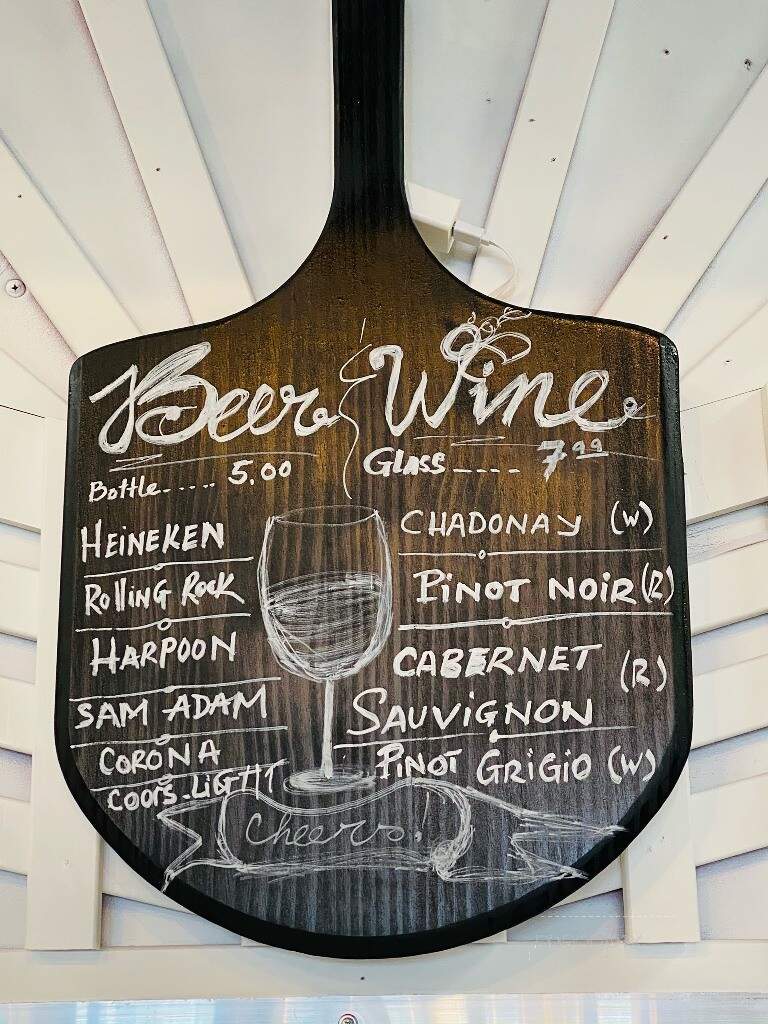 Beer & Wine
Bottle..... 5.00
Glass ---- 7.99
HEINEKEN
ROlliNG ROCK
HARPOON
SAM ADAM
CORONA
COORS-LiGHT
CHADONAY (W)
PiNOT NOiR (R)
CABERNET (R)
SAUViGNON
PiNOT GRiGiO (W)
Cheers!